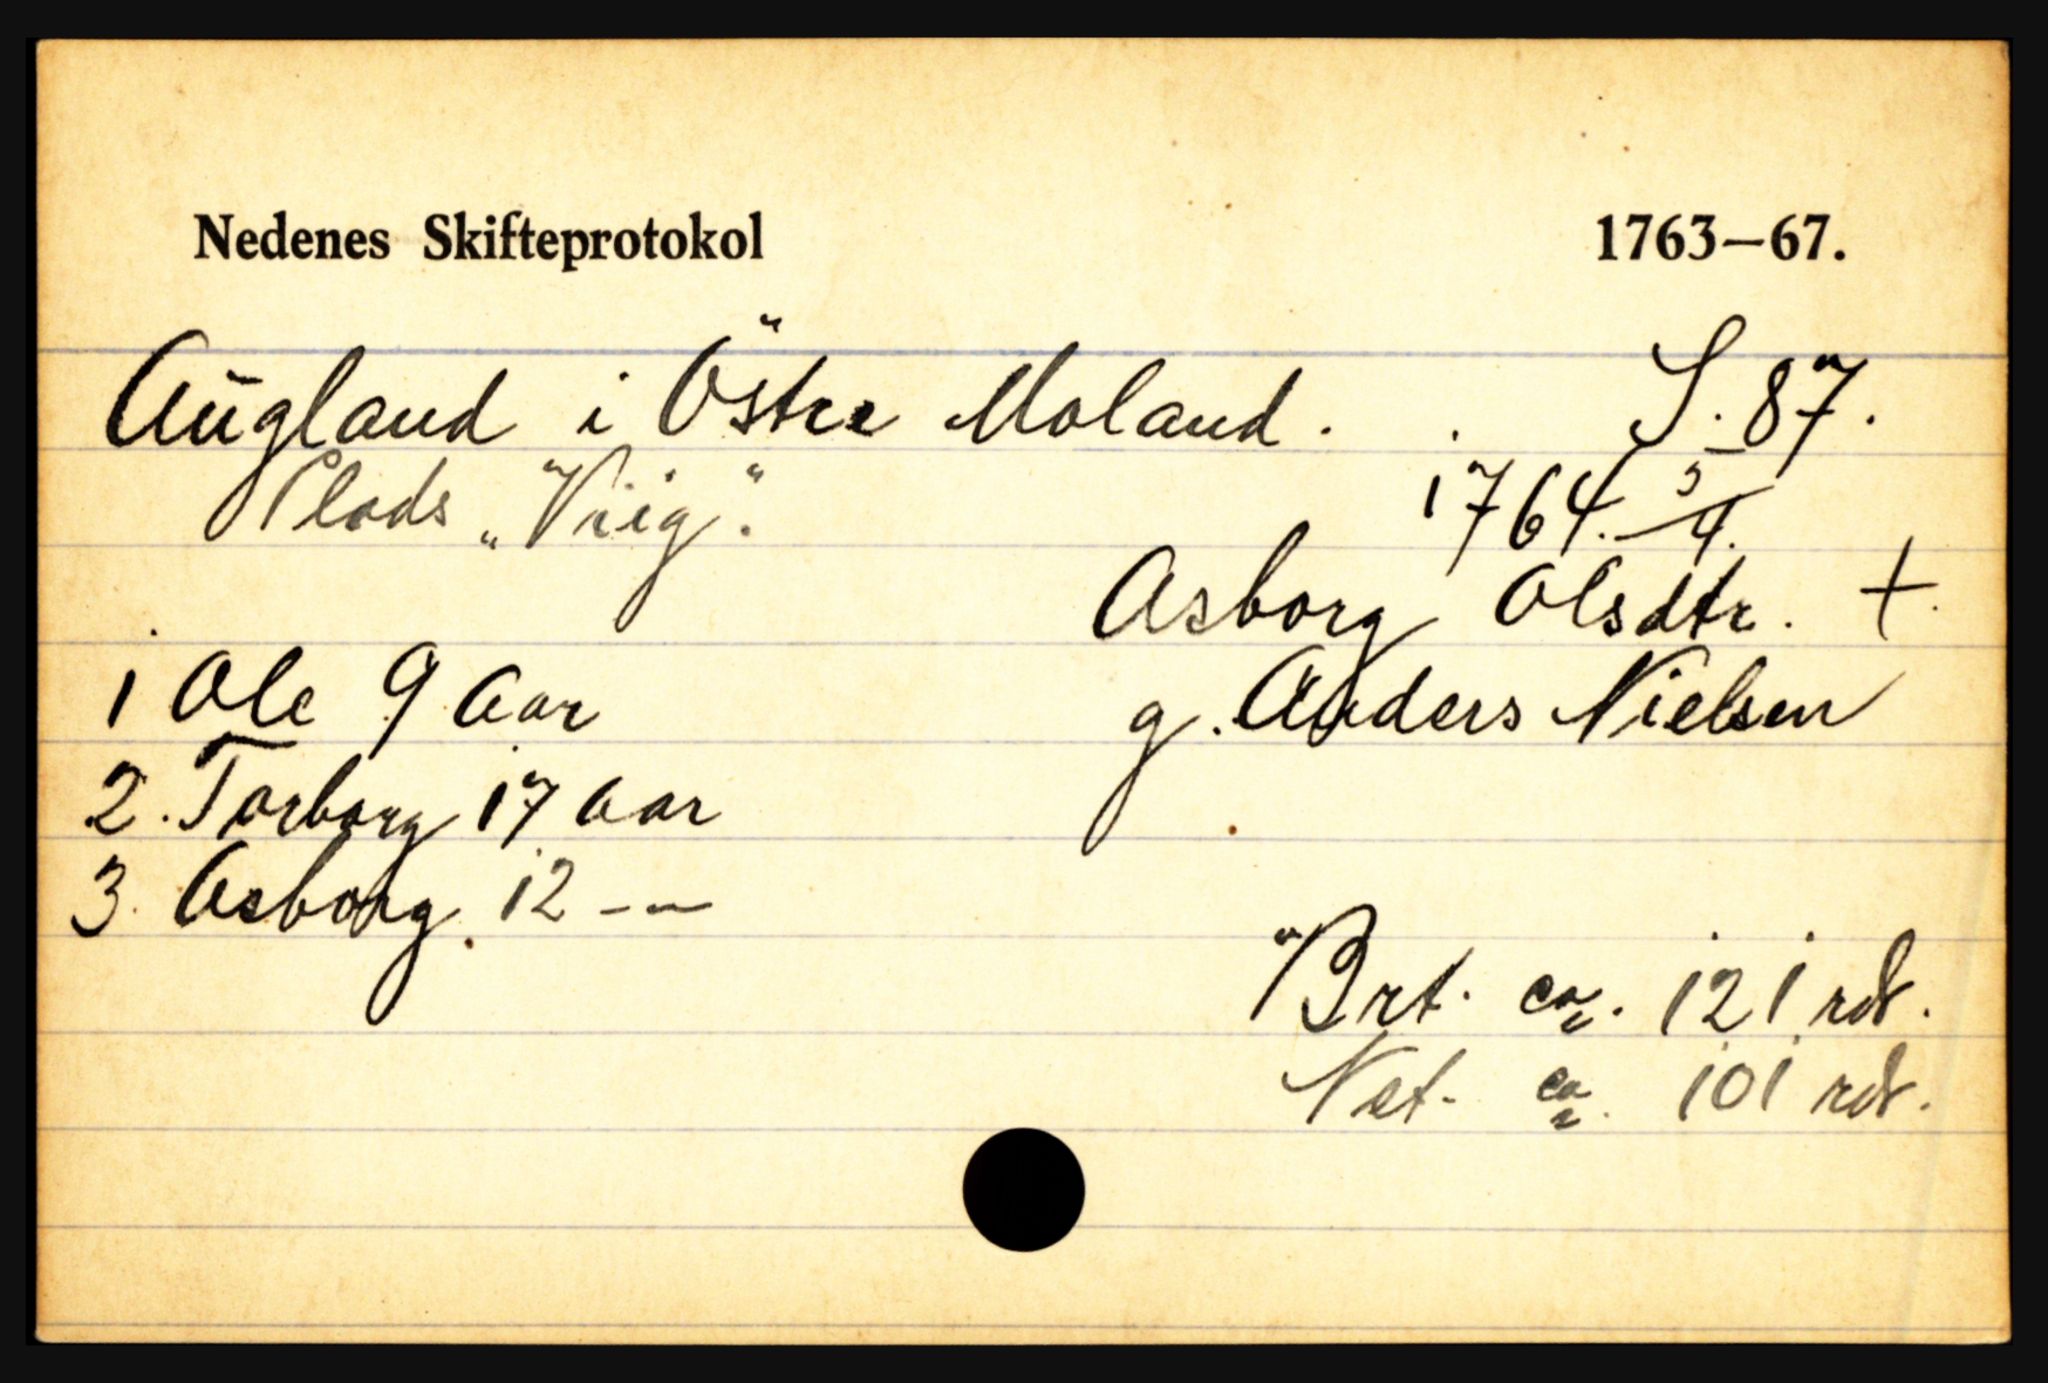 Nedenes Skifteprotokol 1763—67.
Augland i Östre Moland. S. 87.
Plads „Viig". 1764. 5/4.
Asborg Olsdtr. +
1 Ole 9 Aar g. Anders Nielsen
2. Torborg 17 Aar
3. Asborg 12 — —
Brt. ca. 121 rdr.
Net. ca. 101 rdr.